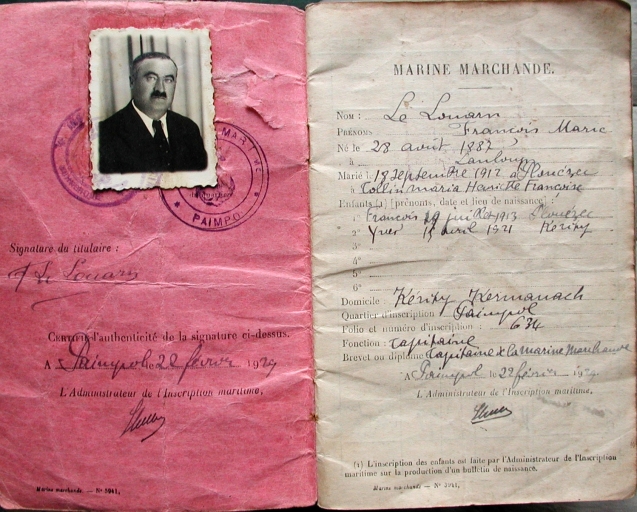 MARITIME
PAIMPOL
Signature du titulaire :
F Le Louarn
Certifié l'authenticité de la signature ci-dessus.
A Paimpol le 22 février 19
L'Administrateur de l'Inscription maritime,
Marine marchande. — N° 3041.
MARINE MARCHANDE.
Nom : Le Louarn
Prénoms François Marie
Né le 28 août 1887
à Lanloup
Marié : 18 septembre 1912 à Plouézec
à Collin Maria Henriette Françoise
Enfants (1) [prénoms, date et lieu de naissance] :
1° François juillet 1913 Plouézec
2° Yves 15 avril 1921 Kérity
3°
4°
5°
6°
Domicile : Kérity Kermanach
Quartier d'inscription Paimpol
Folio et numéro d'inscription : 634
Fonction : Capitaine
Brevet ou diplôme Capitaine de la marine Marchande
A Paimpol le 22 février 19
L'Administrateur de l'Inscription maritime,
(1) L'inscription des enfants est faite par l'Administrateur de l'Inscription
maritime sur la production d'un bulletin de naissance.
Marine marchande. — N° 3041.